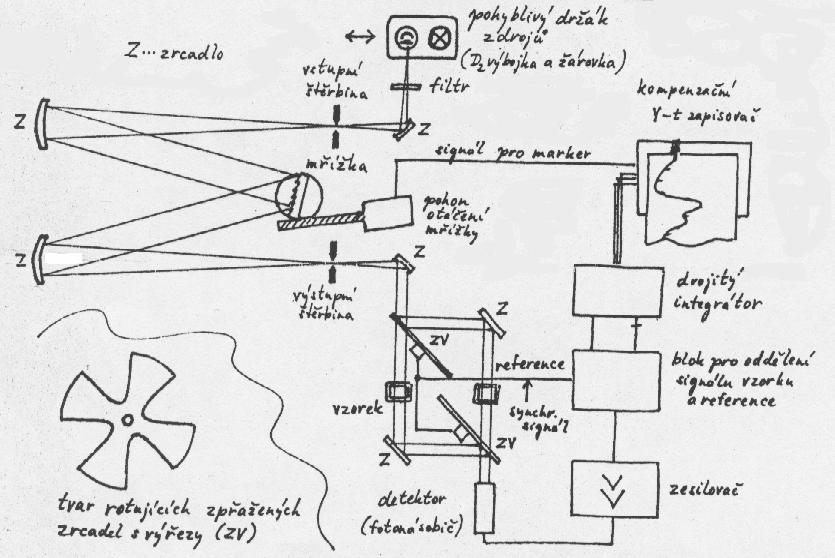 pohyblivý držák
zdrojů
(D₂ výbojka a žárovka)
Z...zrcadlo
vstupní
štěrbina
filtr
kompenzační
Y-t zapisovač
Z
Z
mřížka
signál pro marker
pohon
otáčení
mřížky
Z
Z
výstupní
štěrbina
drojitý
integrátor
Z
ZV
reference
blok pro oddělení
signálu vzorku
a reference
vzorek
synchr.
signál
ZV
Z
detektor
(fotonásobič)
zesilovač
tvar rotujících zpřažených
zrcadel s výřezy (ZV)